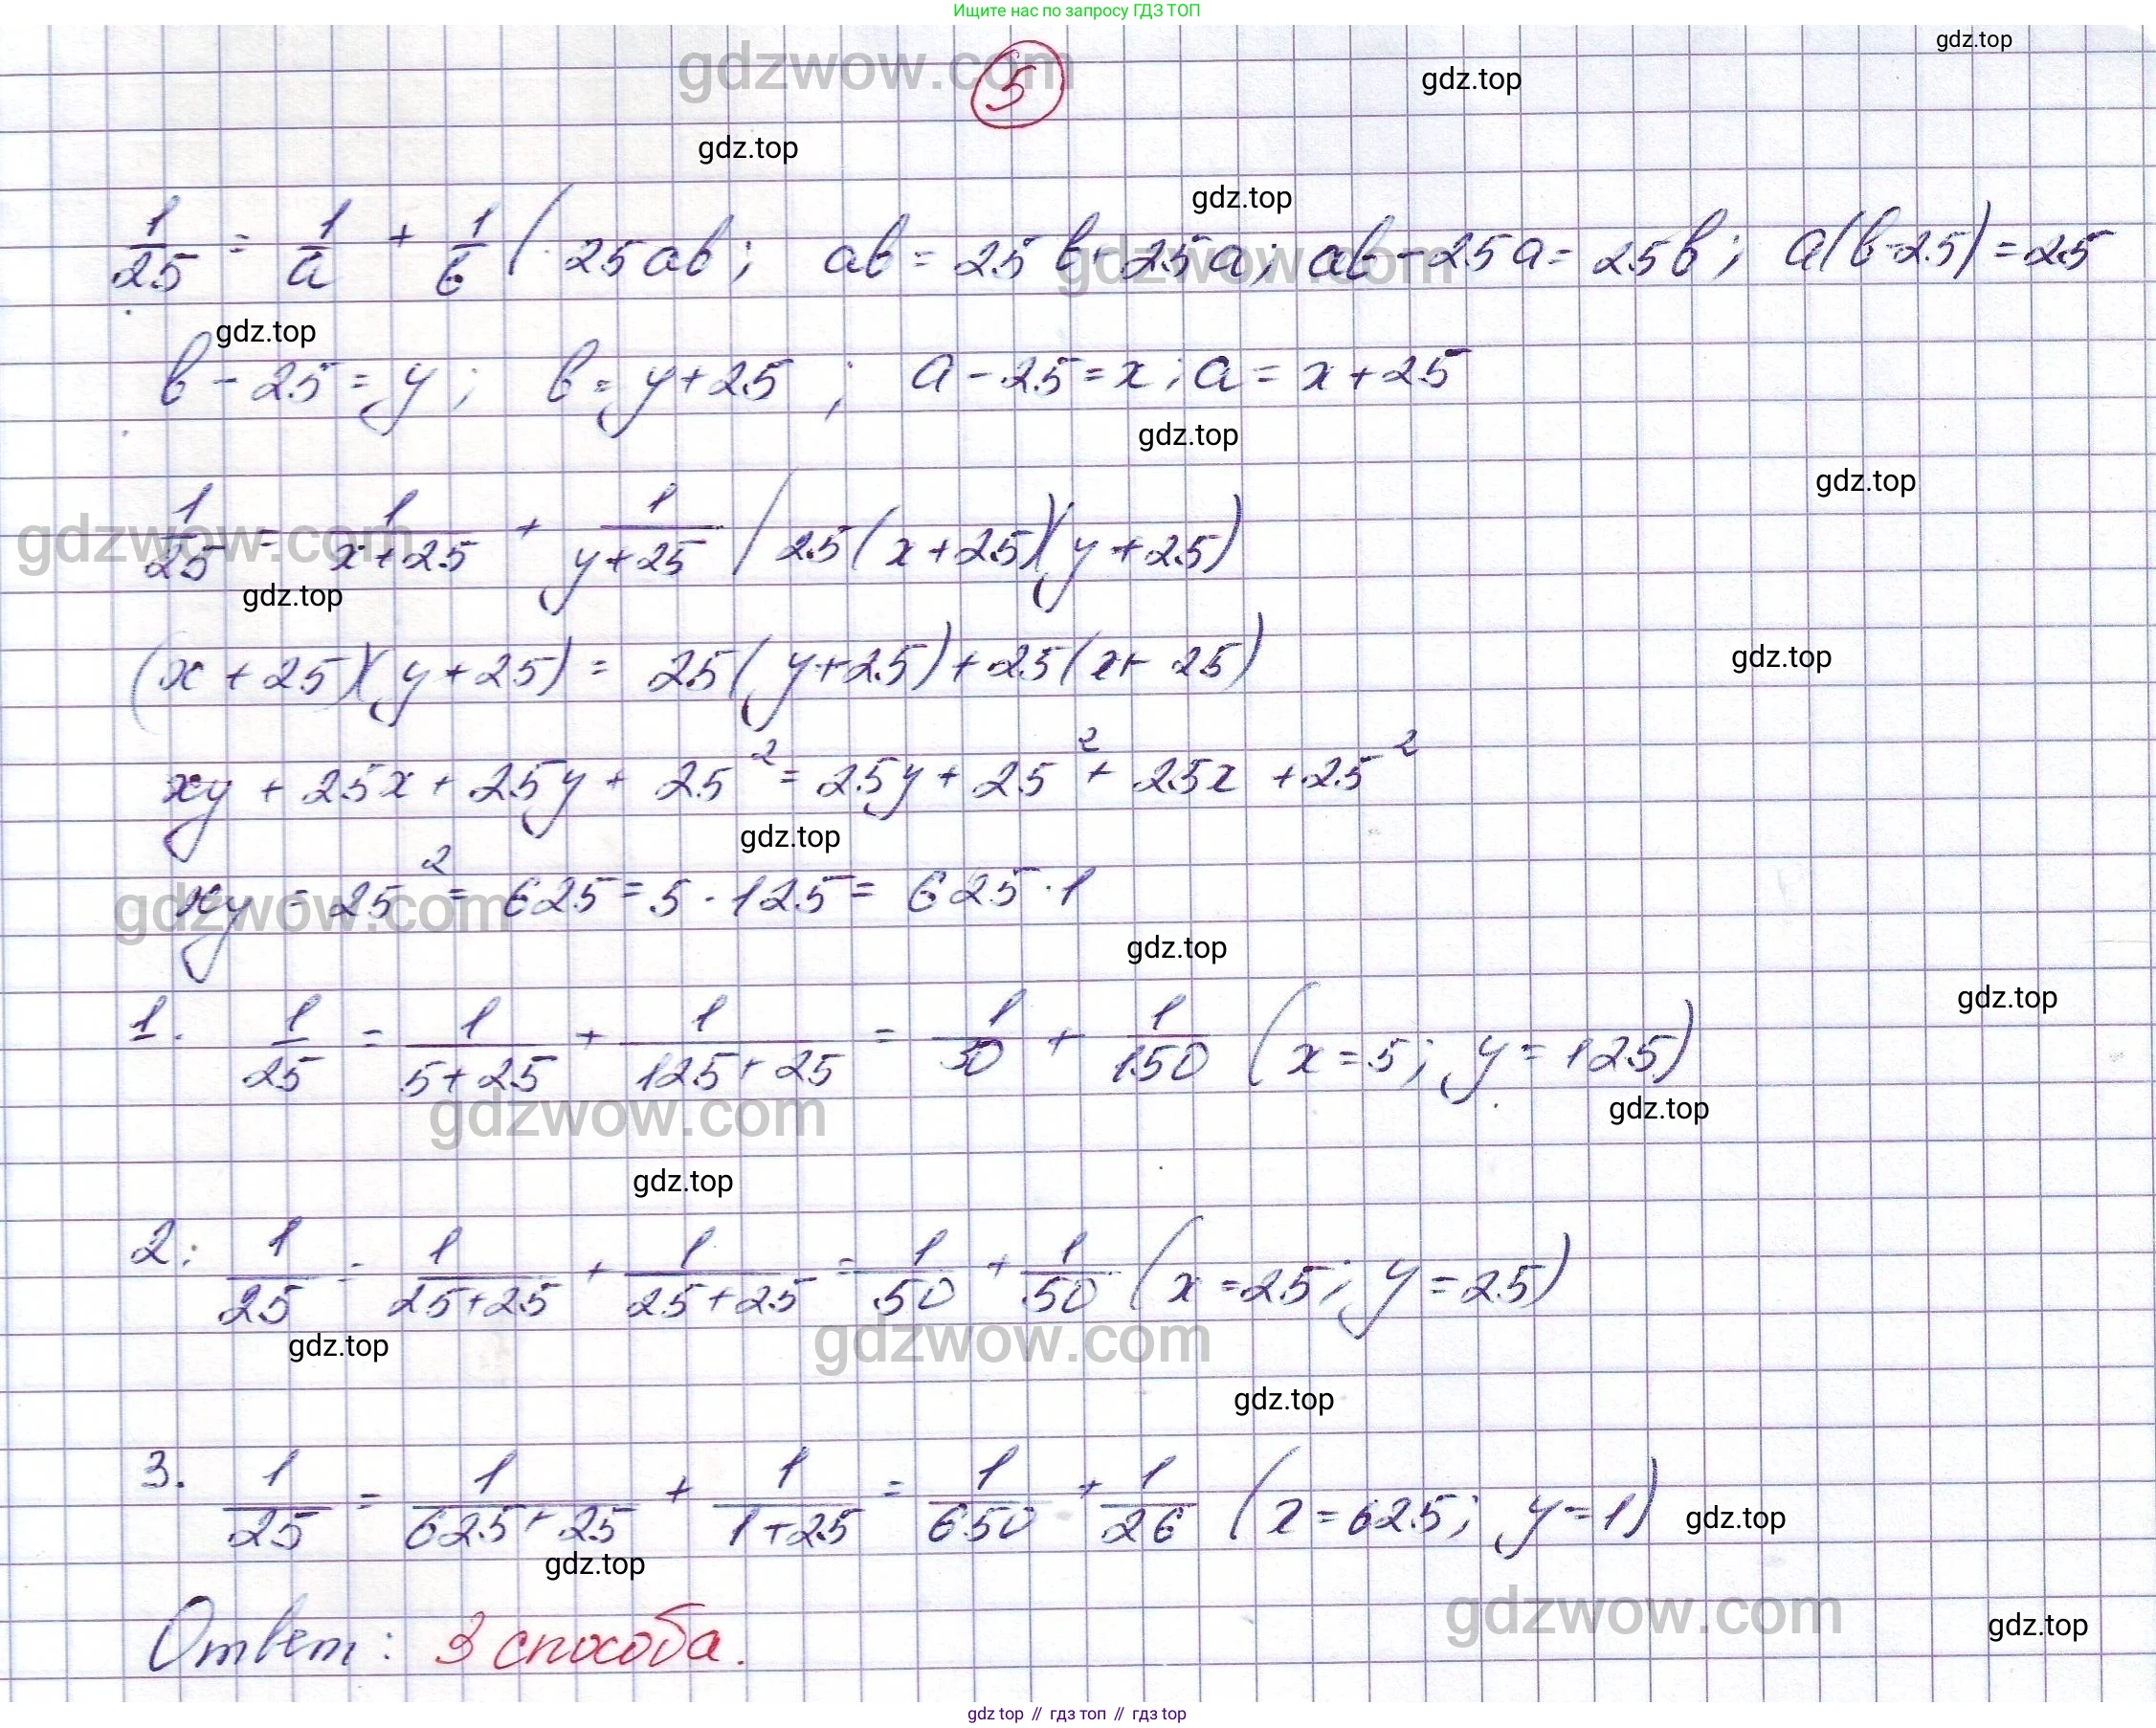 Ищите нас по запросу ГДЗ ТОП
gdz.top
gdzwow.com
5
gdz.top
gdz.top
gdz.top
1/25 = 1/a + 1/b | · 25ab; ab = 25b + 25a; ab - 25a = 25b; a(b-25) = 25
gdzwow.com
gdz.top
b - 25 = y; b = y + 25; a - 25 = x; a = x + 25
gdz.top
gdz.top
1/25 = 1/(x+25) + 1/(y+25) | 25(x+25)(y+25)
gdzwow.com
gdz.top
(x+25)(y+25) = 25(y+25) + 25(x+25)
gdz.top
xy + 25x + 25y + 25² = 25y + 25² + 25x + 25²
gdz.top
xy = 25² = 625 = 5 · 125 = 625 · 1
gdzwow.com
gdz.top
gdz.top
1. 1/25 = 1/(5+25) + 1/(125+25) = 1/30 + 1/150 (x = 5; y = 125)
gdzwow.com
gdz.top
gdz.top
2. 1/25 = 1/(25+25) + 1/(25+25) = 1/50 + 1/50 (x = 25; y = 25)
gdz.top
gdzwow.com
gdz.top
3. 1/25 = 1/(625+25) + 1/(1+25) = 1/650 + 1/26 (x = 625; y = 1)
gdz.top
gdz.top
Ответ: 3 способа.
gdzwow.com
gdz.top
gdz top // гдз топ // gdz top